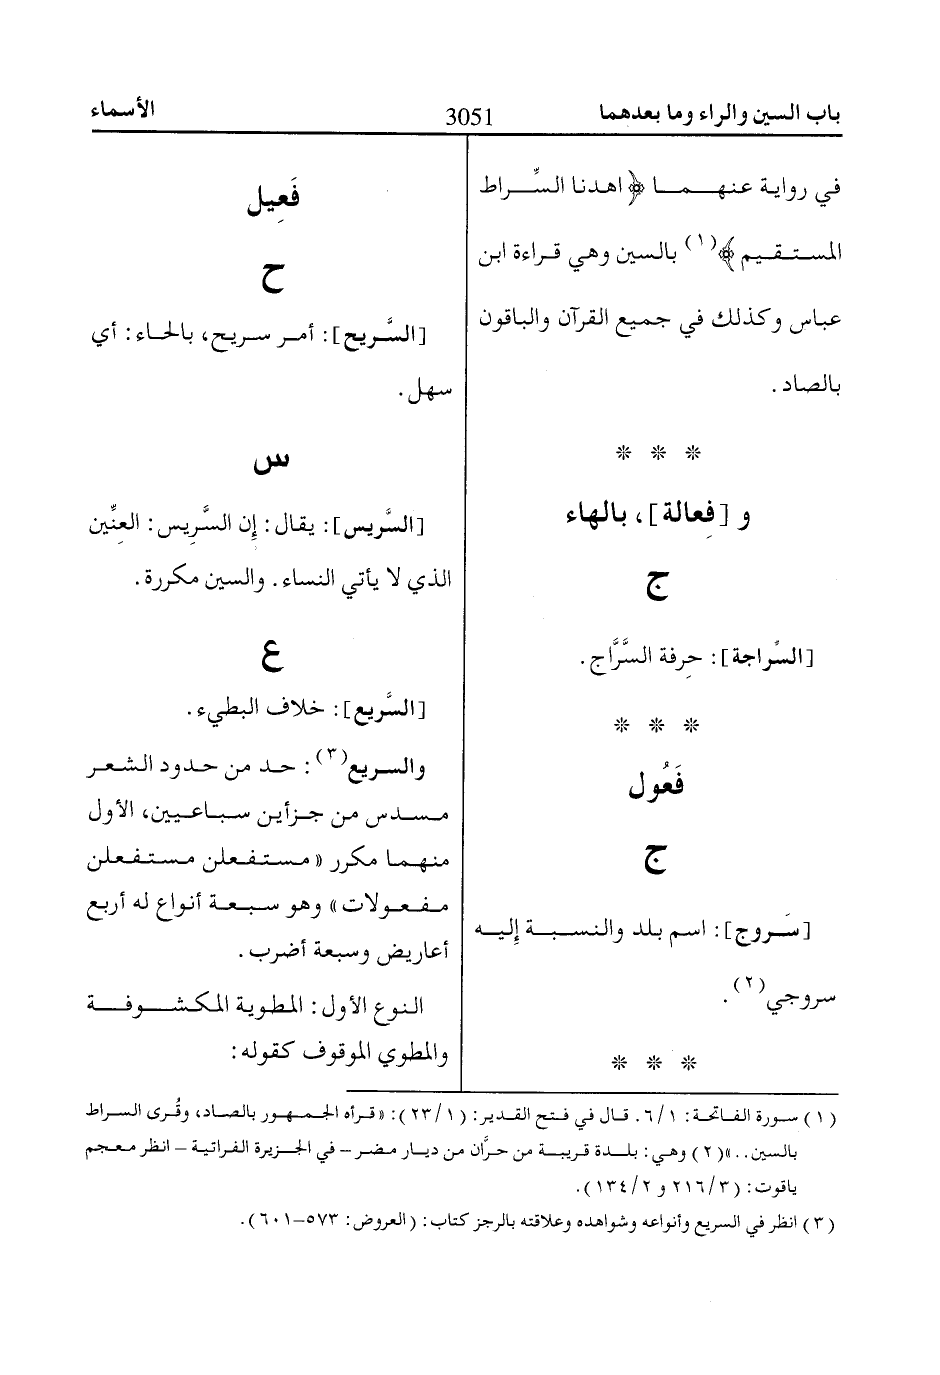 باب السين والراء وما بعدهما
3051
الأسماء
في رواية عنهمـا ﴿اهدنا السِّراط
المستقيم﴾(١) بالسين وهي قراءة ابن
عباس وكذلك في جميع القرآن والباقون
بالصاد.
* * *
و [فِعالة]، بالهاء
ج
[السِّراجة]: حِرفة السَّرَّاج.
* * *
فَعُول
ج
[سَروج]: اسم بلد والنسبة إليه
سروجي(٢).
* * *
فَعِيل
ح
[السَّريح]: أمر سريح، بالحاء: أي
سهل.
س
[السَّريس]: يقال: إِن السَّرِيس: العِنِّين
الذي لا يأتي النساء. والسين مكررة.
ع
[السَّريع]: خلاف البطيء.
والسريع(٣): حد من حدود الشعر
مسدس من جزأين سباعيين، الأول
منهما مكرر «مستفعلن مستفعلن
مفعولات» وهو سبعة أنواع له أربع
أعاريض وسبعة أضرب.
النوع الأول: المطوية المكشوفة
والمطوي الموقوف كقوله:
(١) سورة الفاتحة: ٦/١. قال في فتح القدير: (٢٣/١): «قرأه الجمهور بالصاد، وقُرى السراط
بالسين..»(٢) وهي: بلدة قريبة من حرَّان من ديار مضر – في الجزيرة الفراتية – انظر معجم
ياقوت: (٢١٦/٣ و ١٣٤/٢).
(٣) انظر في السريع وأنواعه وشواهده وعلاقته بالرجز كتاب: (العروض: ٥٧٣–٦٠١).